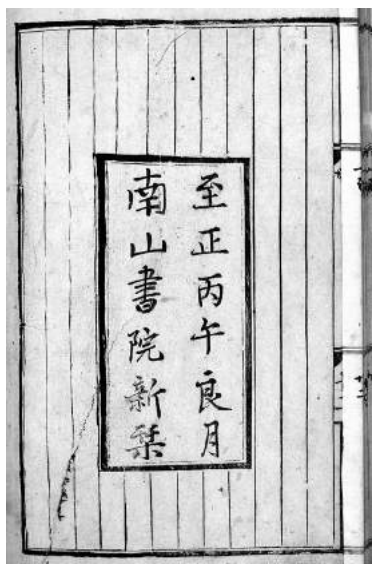 至正丙午良月
南山書院新栞